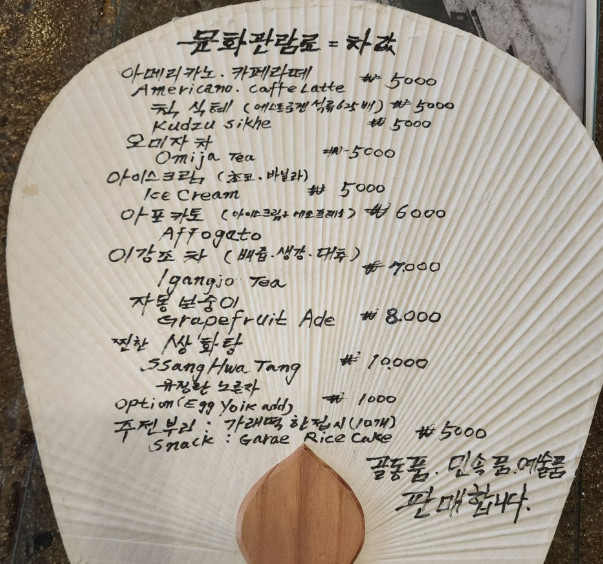 문화관람료 = 차값
아메리카노. 카페라떼 ₩ 5000
Americano. Caffe Latte
칡 식혜 (에스트로겐 석류625배) ₩ 5000
Kudzu Sikhe ₩ 5000
오미자 차
Omija Tea ₩ 5000
아이스크림 (초코. 바닐라)
Ice Cream ₩ 5000
아포카토 (아이스크림+에스프레소) ₩ 6000
Affogato
이강조 차 (배즙.생강.대추)
₩ 7.000
Igangjo Tea
자몽 보숭이
Grapefruit Ade ₩ 8.000
찐한 쌍화탕
SSangHwa Tang ₩ 10.000
유정란 노른자
option(Egg Yoik add) ₩ 1000
주전부리 : 가래떡 한접시(10개)
Snack : Garae Rice Cake ₩ 5000
골동품. 민속품.예술품
판매합니다.